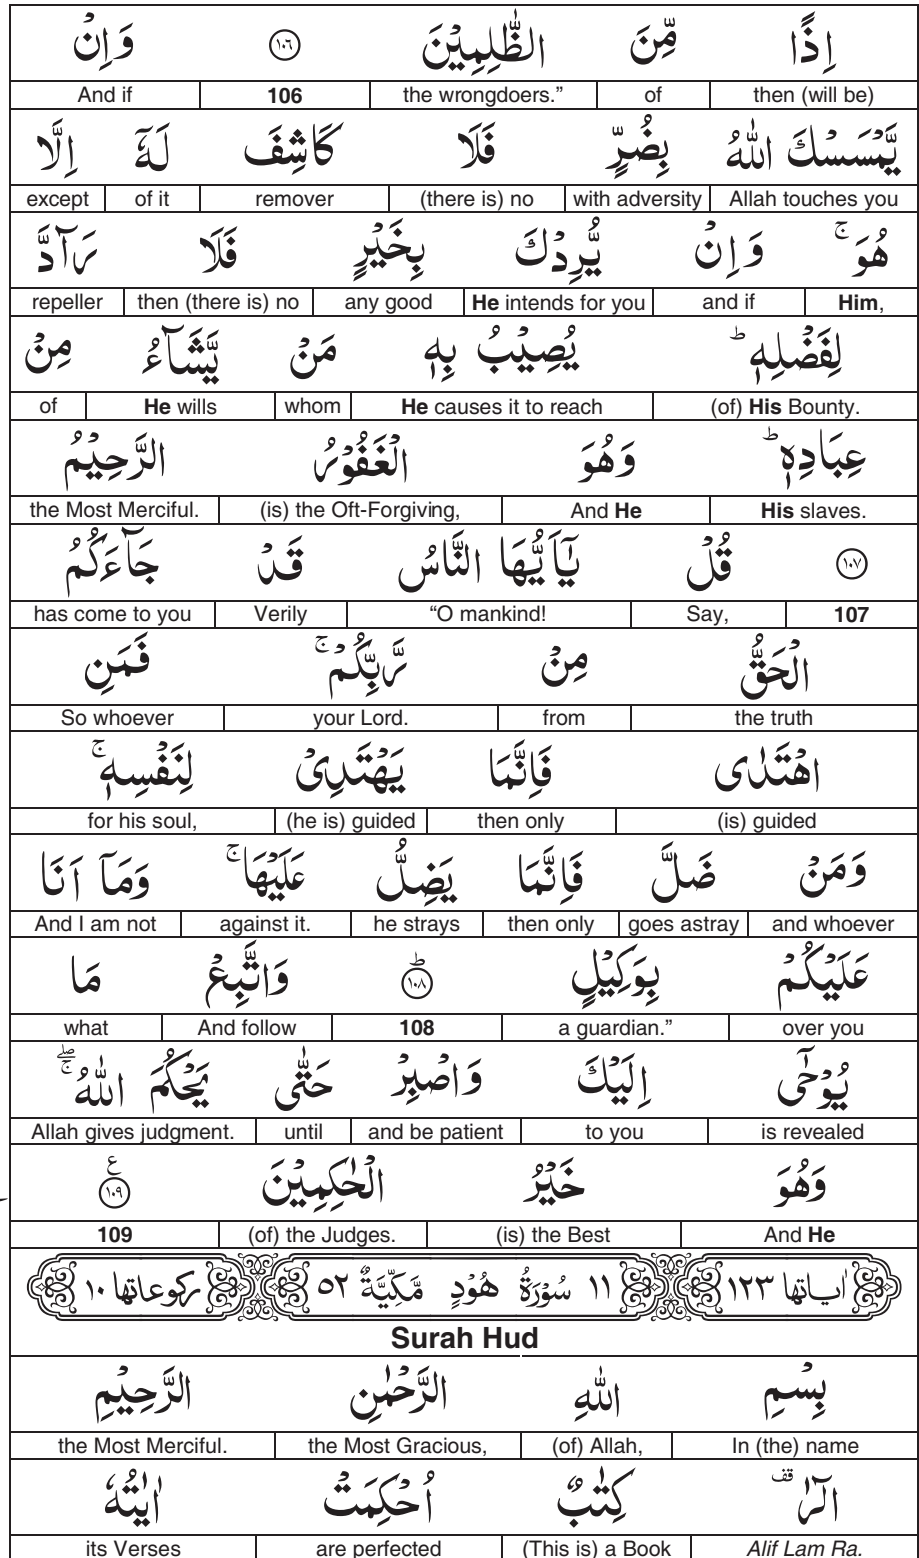 اِذًا مِّنَ الظّٰلِمِيْنَ ١٠٦ وَاِنْ
then (will be) of the wrongdoers.” 106 And if
يَّمْسَسْكَ اللّٰهُ بِضُرٍّ فَلَا كَاشِفَ لَهٗٓ اِلَّا
Allah touches you with adversity (there is) no remover of it except
هُوَ ۚ وَاِنْ يُّرِدْكَ بِخَيْرٍ فَلَا رَآدَّ
Him, and if He intends for you any good then (there is) no repeller
لِفَضْلِهٖ ؕ يُصِيْبُ بِهٖ مَنْ يَّشَآءُ مِنْ
(of) His Bounty. He causes it to reach whom He wills of
عِبَادِهٖ ؕ وَهُوَ الْغَفُوْرُ الرَّحِيْمُ
His slaves. And He (is) the Oft-Forgiving, the Most Merciful.
١٠٧ قُلْ يٰٓاَيُّهَا النَّاسُ قَدْ جَآءَكُمُ
107 Say, “O mankind! Verily has come to you
الْحَقُّ مِنْ رَّبِّكُمْ ۚ فَمَنِ
the truth from your Lord. So whoever
اهْتَدٰى فَاِنَّمَا يَهْتَدِىْ لِنَفْسِهٖ ۚ
(is) guided then only (he is) guided for his soul,
وَمَنْ ضَلَّ فَاِنَّمَا يَضِلُّ عَلَيْهَا ۚ وَمَآ اَنَا
and whoever goes astray then only he strays against it. And I am not
عَلَيْكُمْ بِوَكِيْلٍ ؕ ١٠٨ وَاتَّبِعْ مَا
over you a guardian.” 108 And follow what
يُوْحٰٓى اِلَيْكَ وَاصْبِرْ حَتّٰى يَحْكُمَ اللّٰهُ ۖۚ
is revealed to you and be patient until Allah gives judgment.
وَهُوَ خَيْرُ الْحٰكِمِيْنَ ١٠٩ ع
And He (is) the Best (of) the Judges. 109
اٰياتها ١٢٣ ١١ سُوْرَةُ هُوْدٍ مَّكِّيَّةٌ ٥٢ ركوعاتها ١٠
Surah Hud
بِسْمِ اللّٰهِ الرَّحْمٰنِ الرَّحِيْمِ
In (the) name (of) Allah, the Most Gracious, the Most Merciful.
الٓرٰ قف كِتٰبٌ اُحْكِمَتْ اٰيٰتُهٗ
Alif Lam Ra. (This is) a Book are perfected its Verses